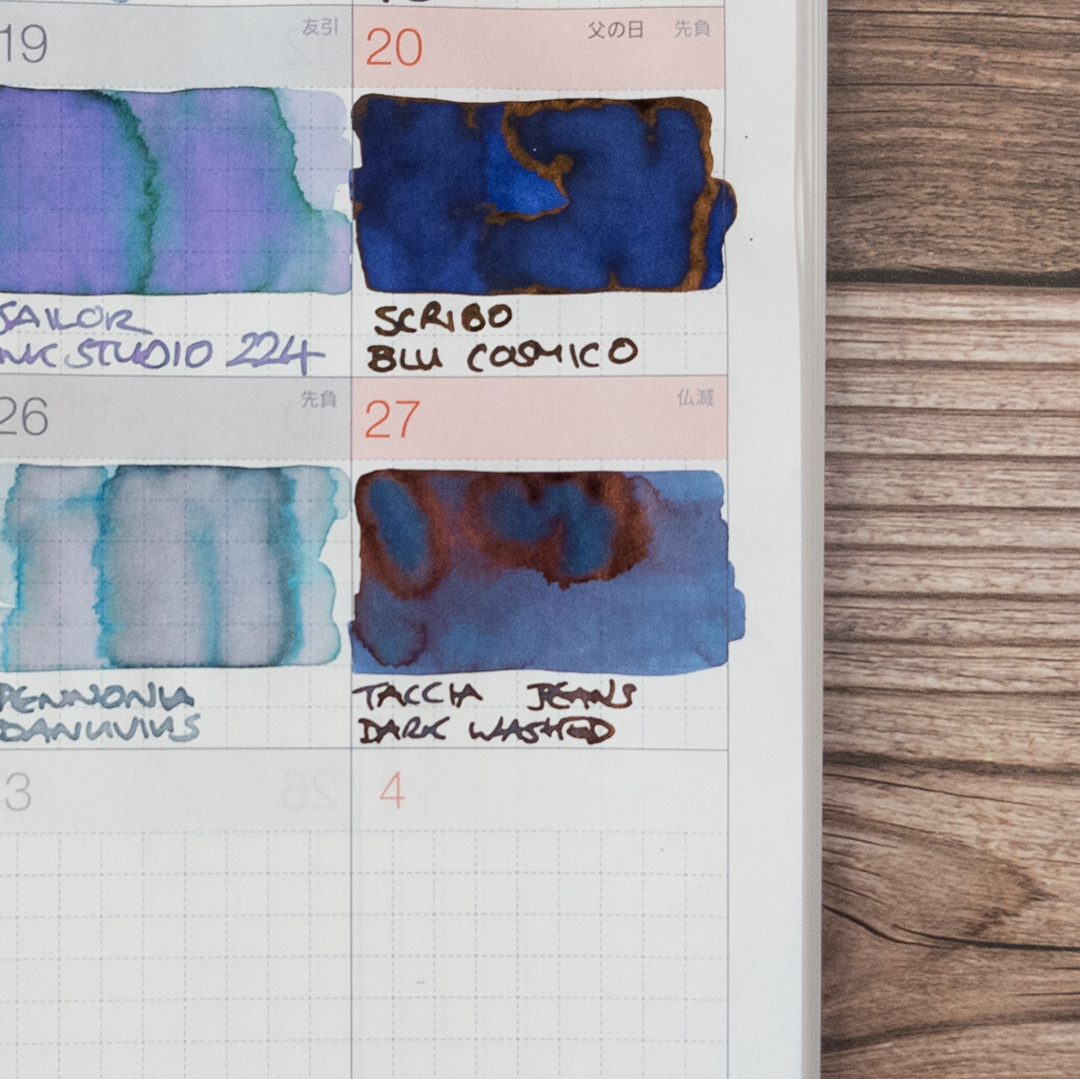 19 友引
20 父の日 先負
SAILOR
INK STUDIO 224
SCRIBO
BLU COSMICO
26 先負
27 仏滅
PENNONIA
DANUVIUS
TACCIA JEANS
DARK WASHED
3
4